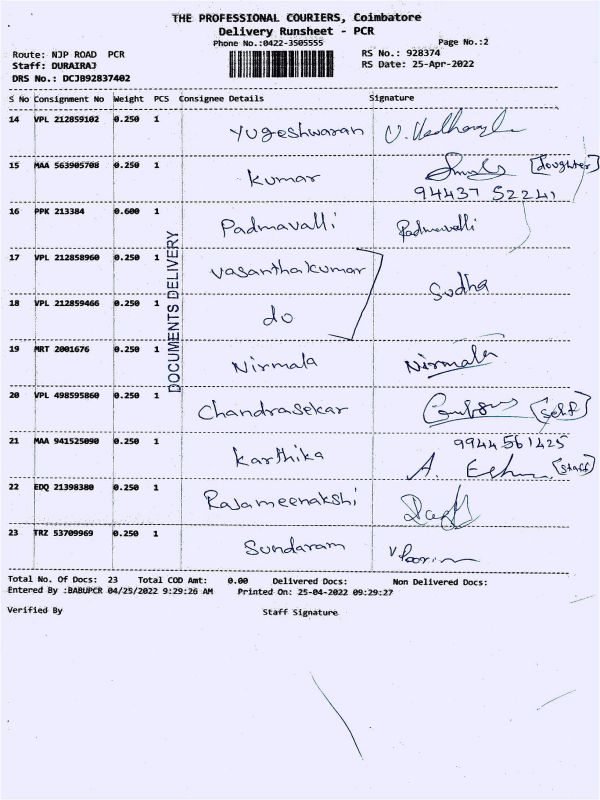 THE PROFESSIONAL COURIERS, Coimbatore
Delivery Runsheet - PCR
Phone No.:0422-3505555 Page No.:2
Route: NJP ROAD PCR RS No.: 928374
Staff: DURAIRAJ RS Date: 25-Apr-2022
DRS No.: DCJB92837402
S No Consignment No Weight PCS Consignee Details Signature
14 VPL 212859102 0.250 1 Yugeshwaran
15 MAA 563905708 0.250 1 Kumar [Doughter]
94437 52241
16 PPK 213384 0.600 1 Padmavalli Padmavalli
17 VPL 212858960 0.250 1 Vasanthakumar
Sudha
18 VPL 212859466 0.250 1 do
DOCUMENTS DELIVERY
19 MRT 2001676 0.250 1 Nirmala Nirmala
20 VPL 498595860 0.250 1 Chandrasekar [Self]
9944561425
21 MAA 941525090 0.250 1 Karthika A. [Staff]
22 EDQ 21398380 0.250 1 Rajameenakshi
23 TRZ 53709969 0.250 1 Sundaram
Total No. Of Docs: 23 Total COD Amt: 0.00 Delivered Docs: Non Delivered Docs:
Entered By :BABUPCR 04/25/2022 9:29:26 AM Printed On: 25-04-2022 09:29:27
Verified By Staff Signature